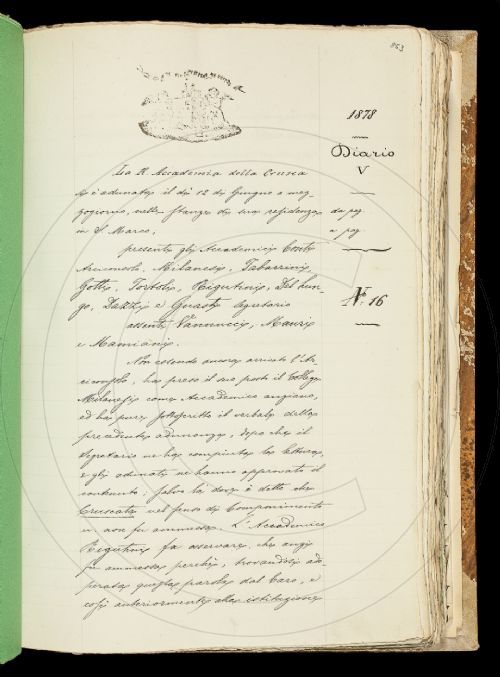 863
1878
Diario
V
da pag.
a pag.
N.° 16
La R. Accademia della Crusca
si è adunata il dì 12 di Giugno a mez-
zogiorno, nelle stanze di sua residenza
in S. Marco;
presenti gli Accademici Conti
Arciconsolo, Milanesi, Tabarrini,
Gotti, Tortoli, Rigutini, Del Lun-
go, Dazzi e Guasti Segretario
assenti Vannucci, Mauri
e Mamiani.
Non essendo ancora arrivato l'Ar-
ciconsolo, ha preso il suo posto il Collega
Milanesi come Accademico anziano,
ed ha pure sottoscritto il verbale della
precedente adunanza, dopo che il
Segretario ne ha compiuta la lettura,
e gli adunati ne hanno approvato il
contenuto; salvo là dove è detto che
Cruscata nel senso di Componimento
non fu ammessa. L'Accademico
Rigutini fa osservare, che anzi
fu ammessa perchè, trovandosi ado-
perata questa parola dal Caro, e
così anteriormente alla istituzione